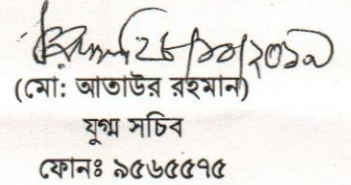 (মো: আতাউর রহমান)
যুগ্ম সচিব
ফোনঃ ৯৫৬৫৫৭৫